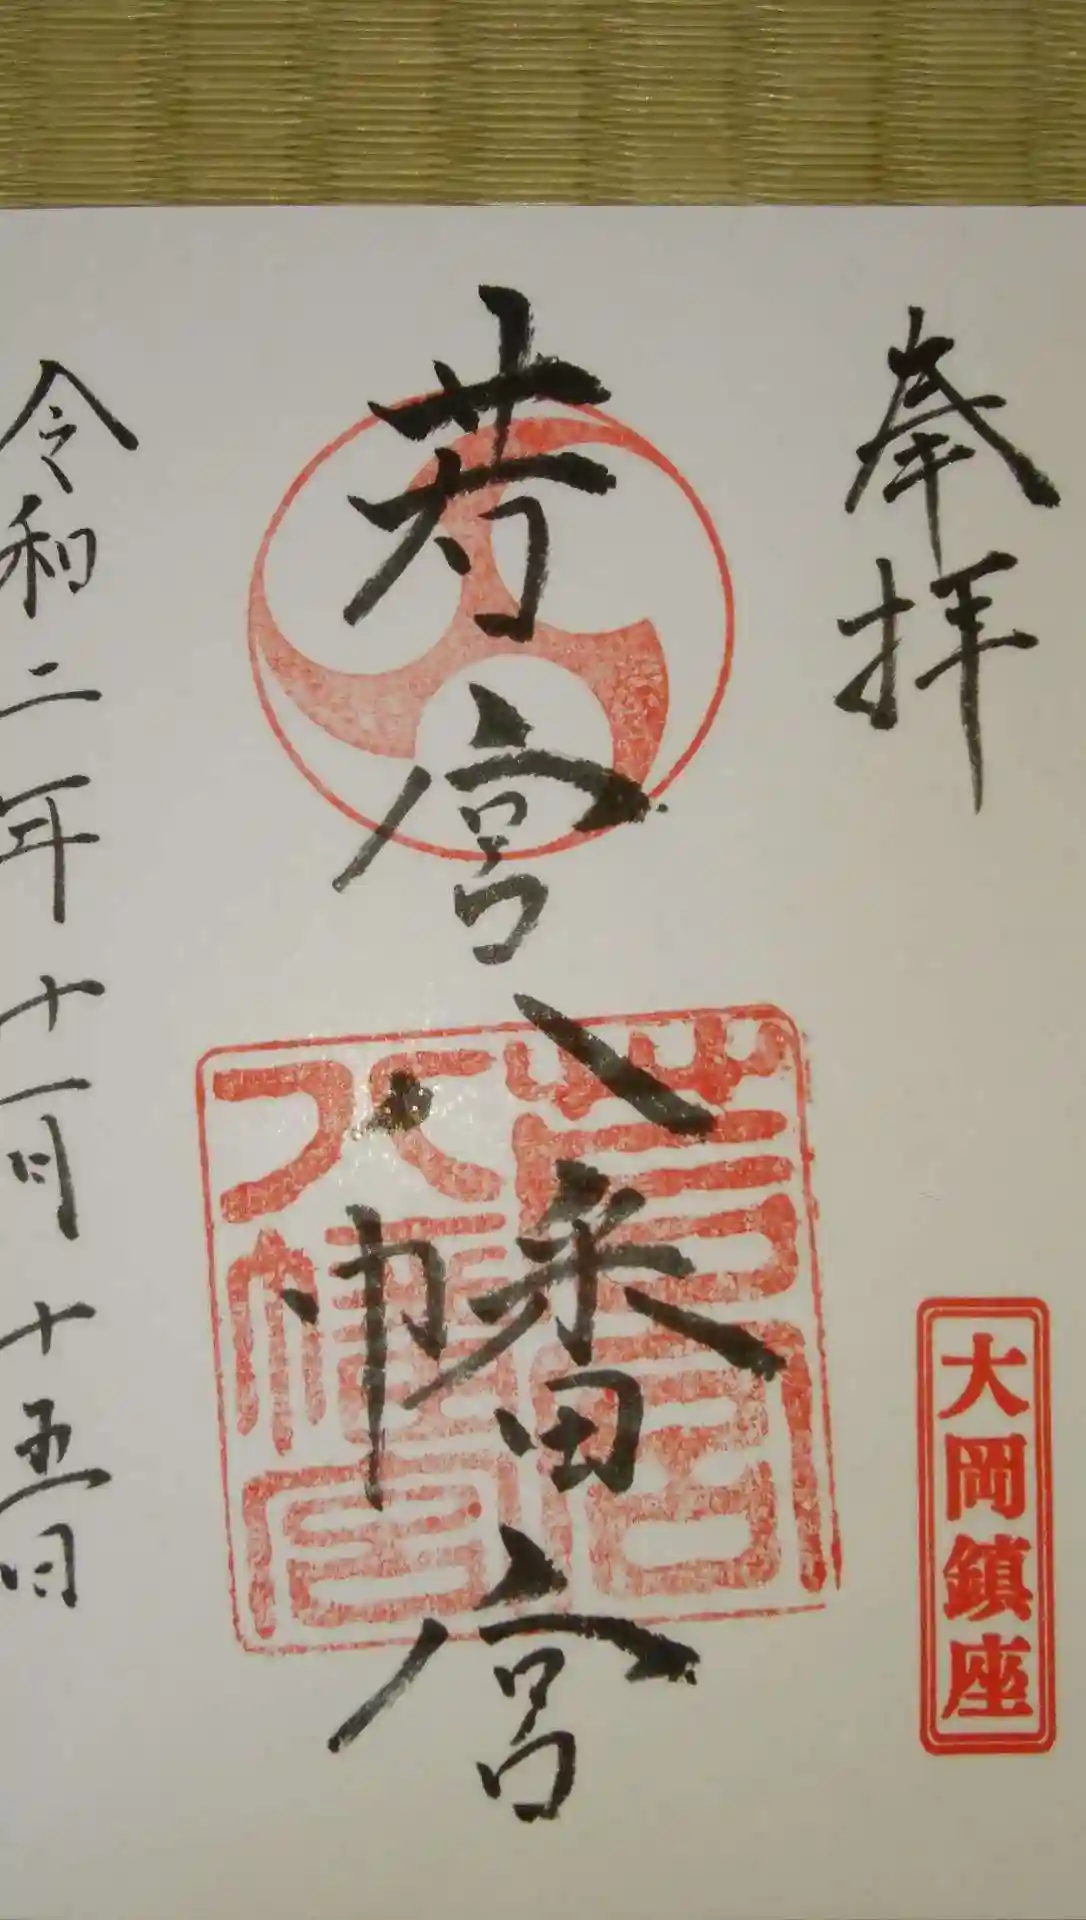 奉拝
大岡鎮座
若宮八幡宮
若宮
八幡宮
令和二年十一月十五日